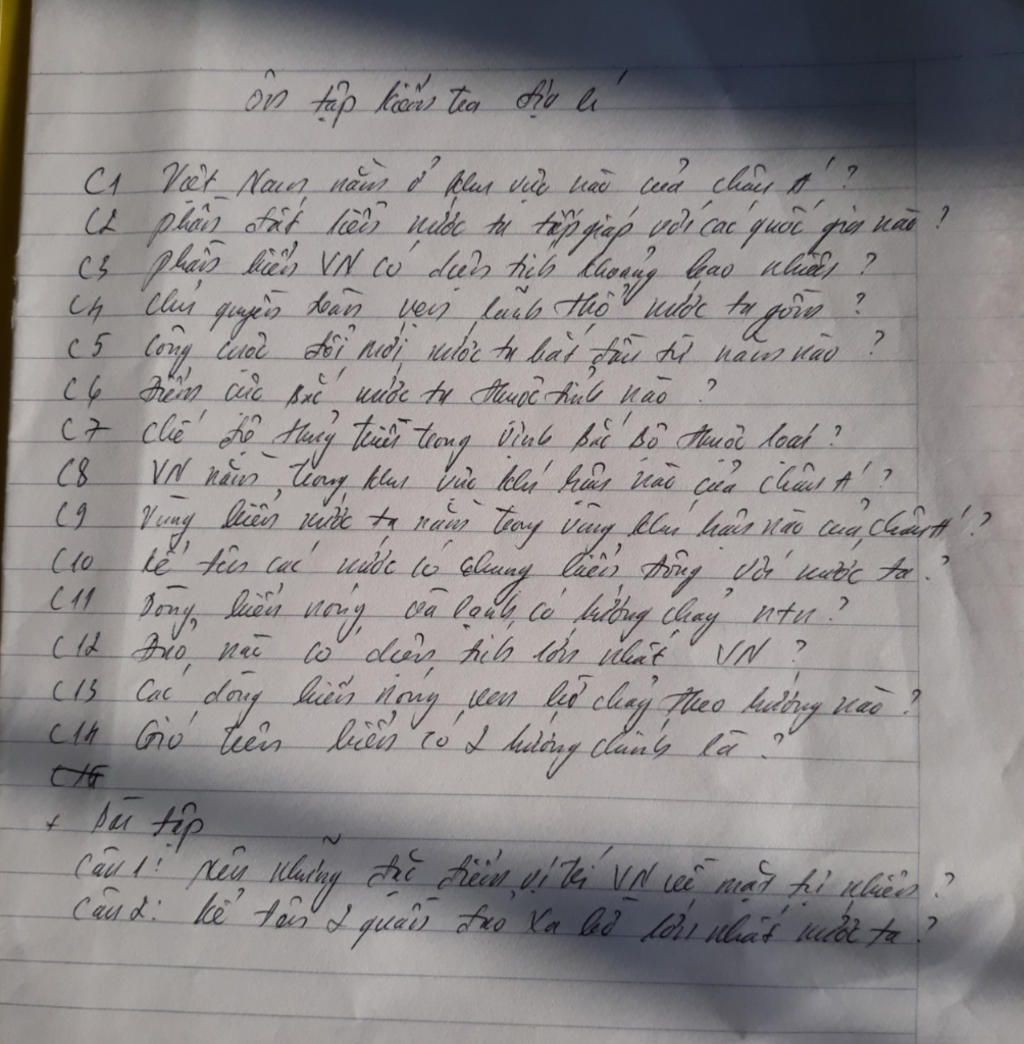 Ôn tập kiểm tra địa lí
C1 Việt Nam nằm ở khu vực nào của châu Á?
C2 phần đất liền nước ta tiếp giáp với các quốc gia nào?
C3 phần biển VN có diện tích khoảng bao nhiêu?
C4 chủ quyền toàn vẹn lãnh thổ nước ta gồm?
C5 Công cuộc đổi mới nước ta bắt đầu từ năm nào?
C6 Điểm cực Bắc nước ta thuộc tỉnh nào?
C7 chế độ thủy triều trong Vịnh Bắc Bộ thuộc loại?
C8 VN nằm trong khu vực khí hậu nào của châu Á?
C9 Vùng biển nước ta nằm trong vùng khí hậu nào của châu Á?
C10 kể tên các nước có chung biển Đông với nước ta?
C11 Dòng biển nóng và lạnh có hướng chảy ntn?
C12 Đảo nào có diện tích lớn nhất VN?
C13 Các dòng biển nóng ven bờ chảy theo hướng nào?
C14 Gió trên biển có 2 hướng chính là?
+ Bài tập
Câu 1: Nêu những đặc điểm vị trí VN về mặt tự nhiên?
Câu 2: kể tên 2 quần đảo xa bờ lớn nhất nước ta?